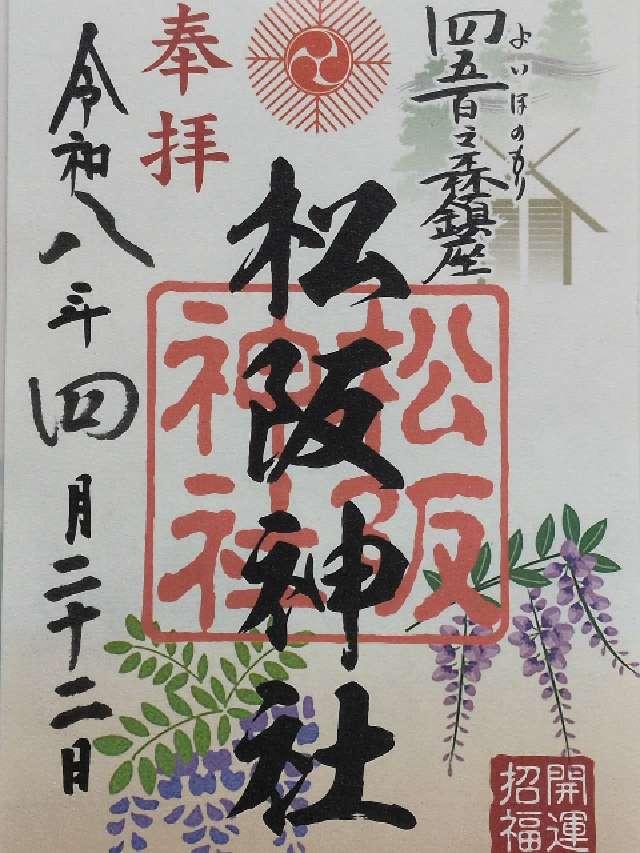 四五百之森鎮座
よいほのもり
松阪神社
松阪
神社
奉拝
令和八年四月二十二日
開運
招福